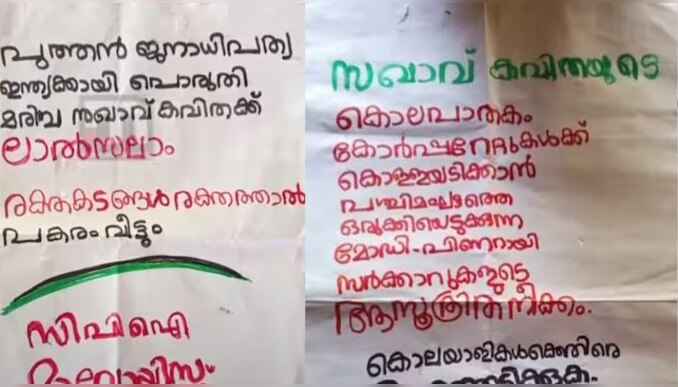 പുത്തൻ ജനാധിപത്യ
ഇന്ത്യക്കായി പൊരുതി
മരിച്ച സഖാവ് കവിതക്ക്
ലാൽസലാം
രക്തകടങ്ങൾ രക്തത്താൽ
പകരം വീട്ടും
സിപിഐ
മാവോയിസം
സഖാവ് കവിതയുടെ
കൊലപാതകം
കോർപ്പറേറ്റുകൾക്ക്
കൊള്ളയടിക്കാൻ
പശ്ചിമഘട്ടത്തെ
ഒരുക്കിയെടുക്കുന്ന
മോഡി-പിണറായി
സർക്കാറുകളുടെ
ആസൂത്രിത നീക്കം.
കൊലയാളികൾക്കെതിരെ